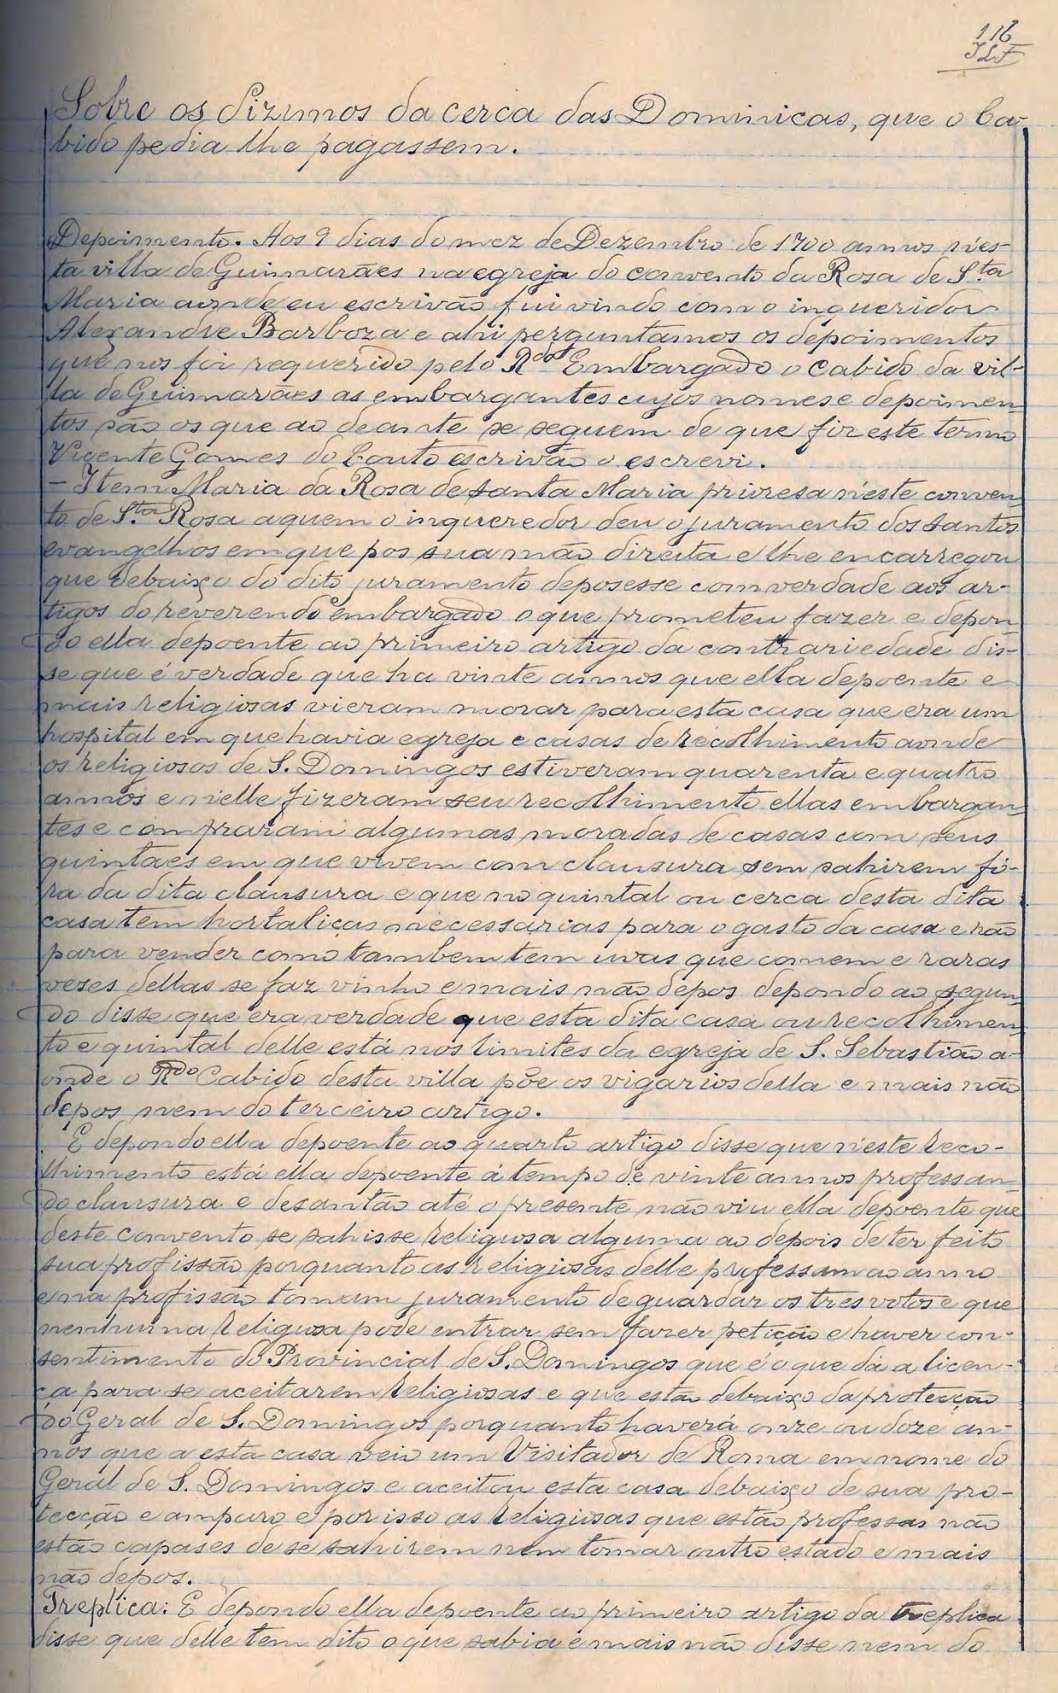 116
JLF
Sobre os dizimos da cerca das Dominicas, que o Ca-
bido pedia lhe pagassem.
Depoimento. Aos 9 dias do mez de Dezembro de 1700 annos n'es-
ta villa de Guimarães na egreja do convento da Rosa de S.ta
Maria aonde eu escrivão fui vindo com o inqueridor
Alexandre Barboza e ahi perguntamos os depoimentos
que nos foi requerido pelo R.do Embargado o Cabido da vil-
la de Guimarães as embargantes cujos nomes e depoimen-
tos são os que ao deante se seguem de que fiz este termo
Vicente Gomes do Couto escrivão o escrevi.
- Item Maria da Rosa de Santa Maria prioresa n'este conven-
to de S.ta Rosa a quem o inqueredor deu o juramento dos santos
evangelhos em que pos sua mão direita e lhe encarregou
que debaixo do dito juramento deposesse com verdade aos ar-
tigos do reverendo embargado o que prometeu fazer e depon-
do ella depoente ao primeiro artigo da contrariedade dis-
se que é verdade que ha vinte annos que ella depoente e
mais religiosas vieram morar para esta casa que era um
hospital em que havia egreja e casas de recolhimento aonde
os religiosos de S. Domingos estiveram quarenta e quatro
annos e n'elle fizeram seu recolhimento ellas embargan-
tes e compraram algumas moradas de casas com seus
quintaes em que vivem com clausura sem sahirem fó-
ra da dita clausura e que no quintal ou cerca desta dita
casa tem hortaliças necessarias para o gasto da casa e não
para vender como tambem tem uvas que comem e raras
vezes dellas se faz vinho e mais não depos depondo ao segun-
do disse que era verdade que esta dita casa ou recolhimen-
to e quintal delle está nos limites da egreja de S. Sebastião a-
onde o R.do Cabido desta villa põe os vigarios della e mais não
depos nem do terceiro artigo.
E depondo ella depoente ao quarto artigo disse que n'este reco-
lhimento está ella depoente á tempo de vinte annos professan-
do clausura e desantão até o presente não viu ella depoente que
deste convento se sahisse religiosa alguma ao depois de ter feito
sua profissão porquanto as religiosas delle professam ao anno
e na profissão tomam juramento de guardar os tres votos e que
nenhuma religiosa pode entrar sem fazer petição e haver con-
sentimento do Provincial de S. Domingos que é o que dá a licen-
ça para se aceitarem religiosas e que estão debaixo da protecção
do Geral de S. Domingos porquanto haverá onze ou doze an-
nos que a esta casa veio um Visitador de Roma em nome do
Geral de S. Domingos e aceitou esta casa debaixo de sua pro-
tecção e amparo e por isso as religiosas que estão professas não
estão capases de se sahirem nem tomar outro estado e mais
não depos.
Treplica: E depondo ella depoente ao primeiro artigo da treplica
disse que delle tem dito o que sabia e mais não disse nem do